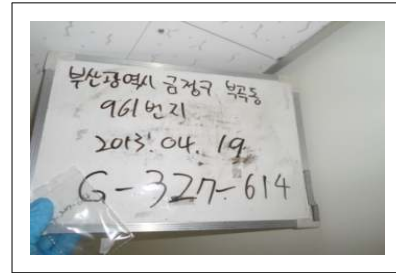 부산광역시 금정구 부곡동
961번지
2013. 04. 19
G-327-614